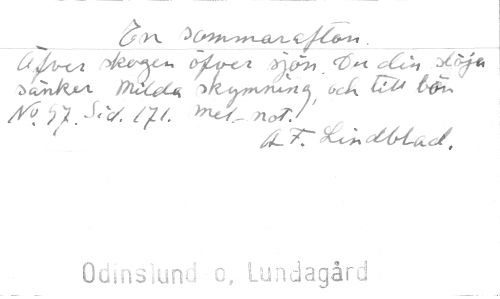 En sommarafton.
Öfver skogen öfver sjön. Du din slöja
sänker milda skymning, och till bön
No. 97. Sid. 171. Mel. not.
A F. Lindblad.
Odinslund o, Lundagård